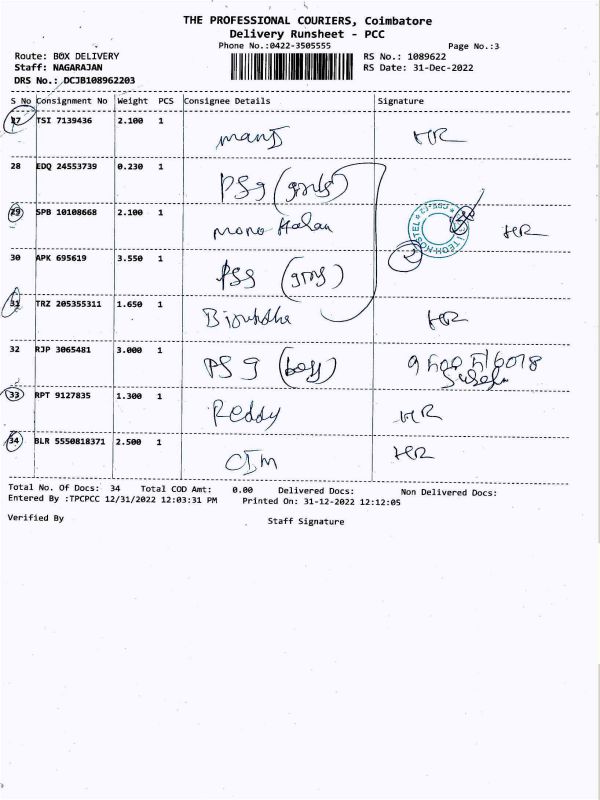 THE PROFESSIONAL COURIERS, Coimbatore
Delivery Runsheet - PCC
Phone No.:0422-3505555 Page No.:3
Route: BOX DELIVERY RS No.: 1089622
Staff: NAGARAJAN RS Date: 31-Dec-2022
DRS No.: DCJB108962203
S No Consignment No Weight PCS Consignee Details Signature
27 TSI 7139436 2.100 1
HR
28 EDQ 24553739 0.230 1
PSg (girls)
29 SPB 10108668 2.100 1
HR
30 APK 695619 3.550 1
PSg
31 TRZ 205355311 1.650 1
HR
32 RJP 3065481 3.000 1
PSg (boys)
33 RPT 9127835 1.300 1
Reddy HR
34 BLR 5550818371 2.500 1
CIM HR
Total No. Of Docs: 34 Total COD Amt: 0.00 Delivered Docs: Non Delivered Docs:
Entered By :TPCPCC 12/31/2022 12:03:31 PM Printed On: 31-12-2022 12:12:05
Verified By Staff Signature